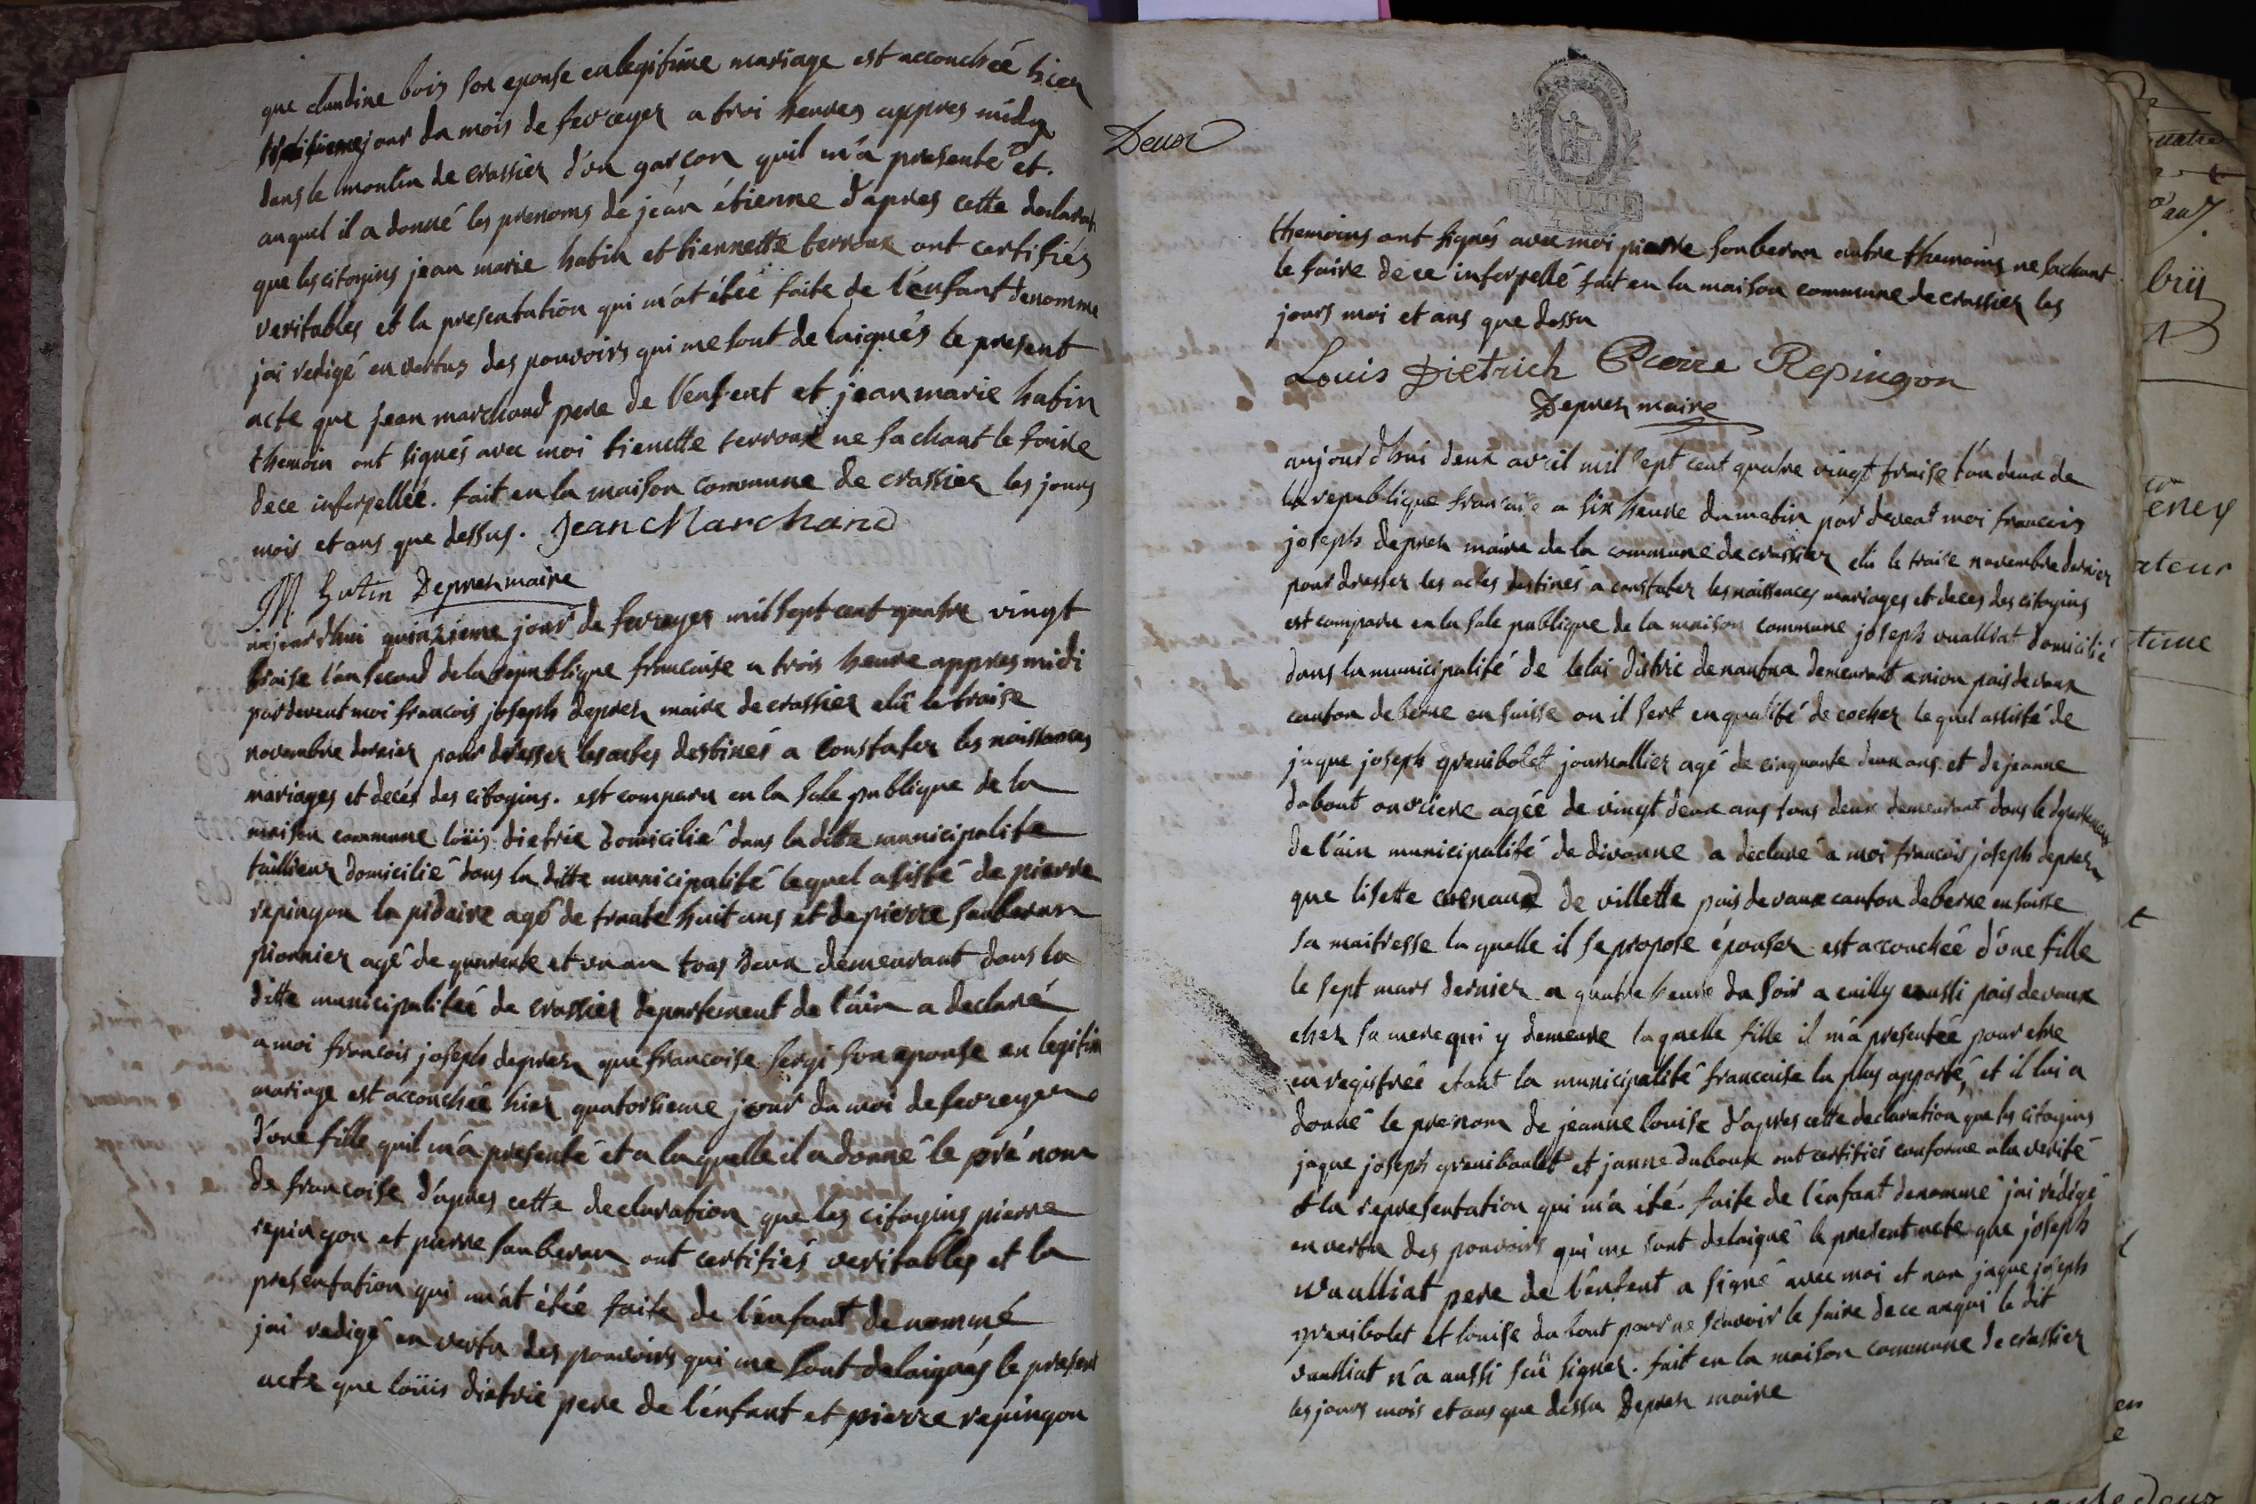 que claudine bois son epouse en legitime mariage est accouchée hier
jour du mois de fevreyer a troi heures appres midy
dans le moulin de crassier d'un garçon quil m'a presenté et
auquel il a donné les prenoms de jéan étienne d'apres cette declarat
que les citoyins jean marie hutin et tiennette terroux ont certifiés
veritables et la presentation qui m'at étée faite de l'énfant denommé
jai redigé en vertus des pouvoirs qui me sont delaigués le present
acte que jean marchand pere de l'enfent et jean marie hutin
themoin ont signés avec moi tienette terroux ne sachant le faire
de ce inferpellée. fait en la maison commune de crassier les jours
mois et ans que dessus. Jean Marchand
M hutin Deprez maire
aujourdhui quinzieme jour de fevreyer mil sept cent quatre vingt
traise l'an second de la republique francaise a trois heure appres midi
pardevent moi francois joseph deprez maire de crassier elû le traise
novembre dernier pour dresser les actes destinés a constater les naissances
mariages et decés des citoyins. est comparu en la sale publique de la
maison commune loüis dietrie domicilié dans la ditte municipalite
taillieur domicilié dans la ditte municipalité lequel assisté de pierre
repingon la pidaire agé de trante huit ans et de pierre sauberan
pionnier agé de quarente et un an tous deux demeurant dans la
ditte municipalitée de crassier departement de l'ain a declaré
a moi francois joseph deprez que francoise sergi son epouse en legitim
mariage est accouchée hier quatorsieme jour du moi de fevreyer
d'une fille quil m'a presenté et a laquelle il a donné le pré nom
de francoise d'apres cette declaration que les citoyins pierre
repingon et pierre sauberan ont certifiés veritables et la
presentation qui m'at étée faite de l'énfant denommé
jai redigé en vertu des pouvoirs qui me sont delaigués le present
acte que loüis dietrie pere de l'énfant et pierre repingon
Deux
MINUTE
themoins ont signés avec moi pierre sauberan autre themoins ne sachant
le faire de ce inferpellé fait en la maison commune de crassier les
jours moi et ans que dessu
Louis Dietrich Pierre Repingon
Deprez maire
aujourd'hui deux avril mil sept cent quatre vingt traise l'an deux de
la republique francaise a six heure du matin par devent moi francois
joseph deprez maire de la commune de crassier elû le traise novembre dernier
pour dresser les actes destinés a constater les naissences mariages et deces des citoyins
est comparu en la sale publique de la maison commune joseph vualliat domicilié
dans la municipalité de lelai distric de nantua demeurant a nion pais de vaux
canton de berne en suisse ou il sert en qualité de cocher lequel assisté de
jaque joseph grenibolet journallier agé de cinquante deux ans et de jeanne
dubout ouvriere agée de vingt deux ans tous deux demeurant dans le departement
de l'ain municipalité de divonne a declaré a moi francois joseph deprez
que lisette de villette pais de vaux canton de berne en suisse
sa maitresse la quelle il se propose épouser est accouchée d'une fille
le sept mars dernier a quatre heure du soir a cuilly aussi pais de vaux
chez sa mere qui y demeure la quelle fille il m'a presentée pour etre
en registrée etant la municipalité francaise la plus apporté, et il lui a
donné le prenom de jeanne louise d'apres cette declaration que les citoyins
jaque joseph greniboulet et janne duboux ont certifiés conforme a la verité
et la representation qui m'a été faite de l'énfant denommé jai redigé
en vertu des pouvoirs qui me sont delaigué le present acte que joseph
vualliat pere de l'énfent a signé avec moi et non jaque joseph
grenibolet et louise du bout pour ne scavoir le faire de ce anqui le dit
vualliat n'a aussi sçû signer. fait en la maison commune de crassier
les jours mois et ans que dessu Deprez maire